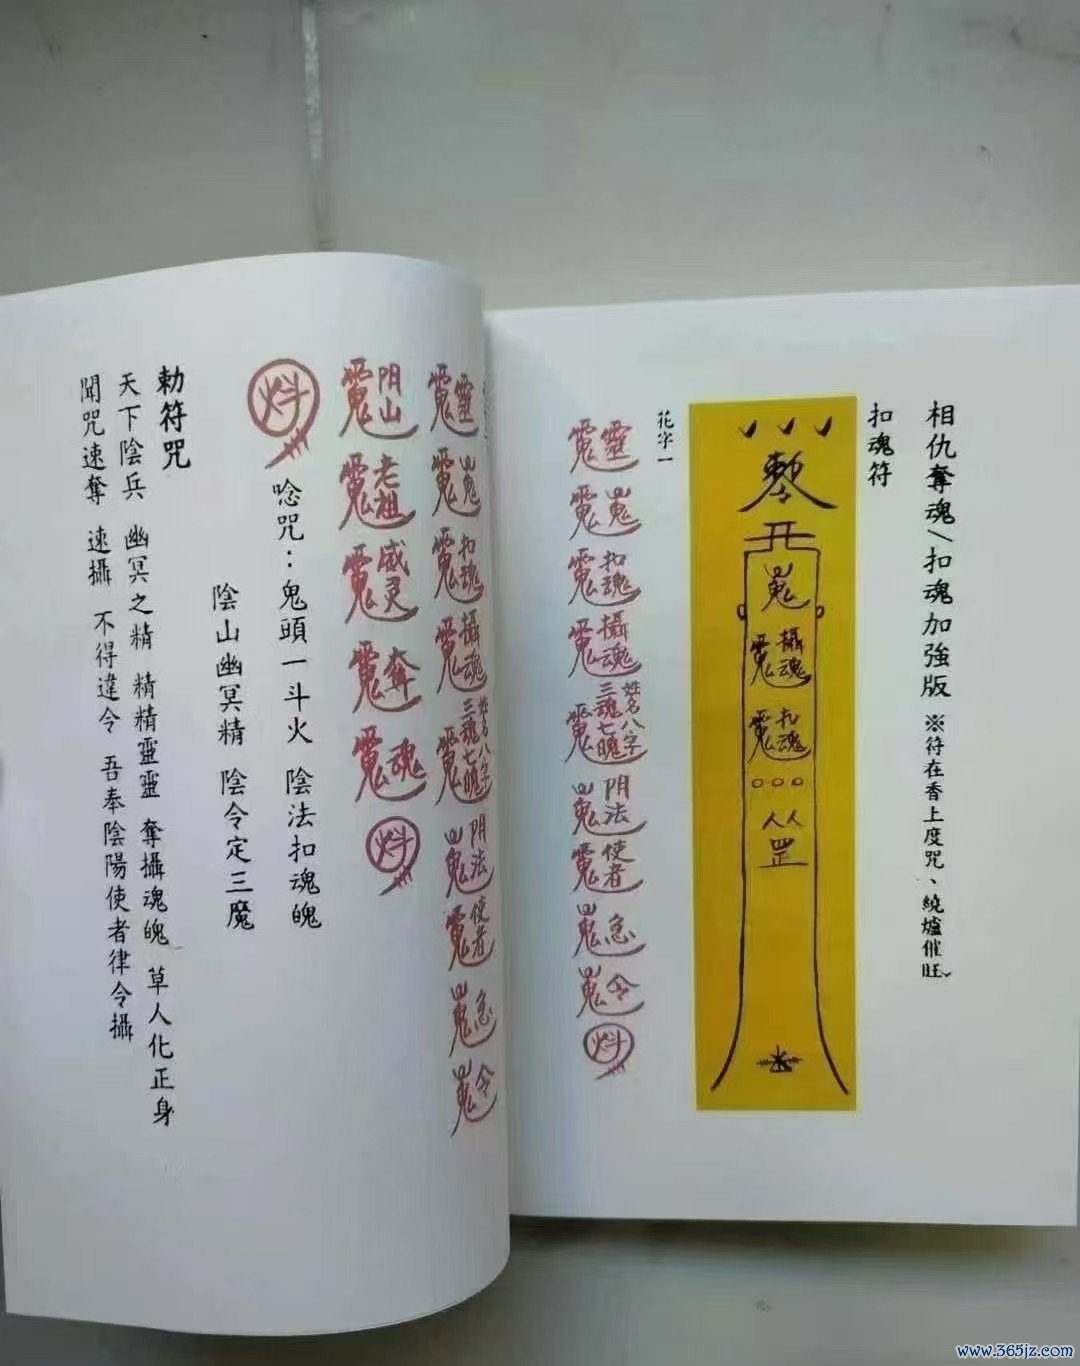 相仇奪魂/扣魂加強版 ※符在香上度咒、繞爐催旺
扣魂符
敕
攝魂
扣魂
罡
花字一
靈
扣魂
攝魂
姓名八字
三魂七魄
阴法
使者
急
令
炓
靈
扣魂
攝魂
姓名八字
三魂七魄
阴法
使者
急
令
阴山
老祖
威灵
奪
魂
炓
炓
唸咒：鬼頭一斗火 陰法扣魂魄
陰山幽冥精 陰令定三魔
勅符咒
天下陰兵 幽冥之精 精精靈靈 奪攝魂魄 草人化正身
聞咒速奪 速攝 不得違令 吾奉陰陽使者律令攝
www.365jz.com